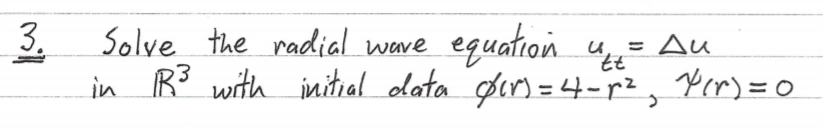 3. Solve the radial wave equation u_tt = Δu
in ℝ³ with initial data ϕ(r) = 4 - r², ψ(r) = 0